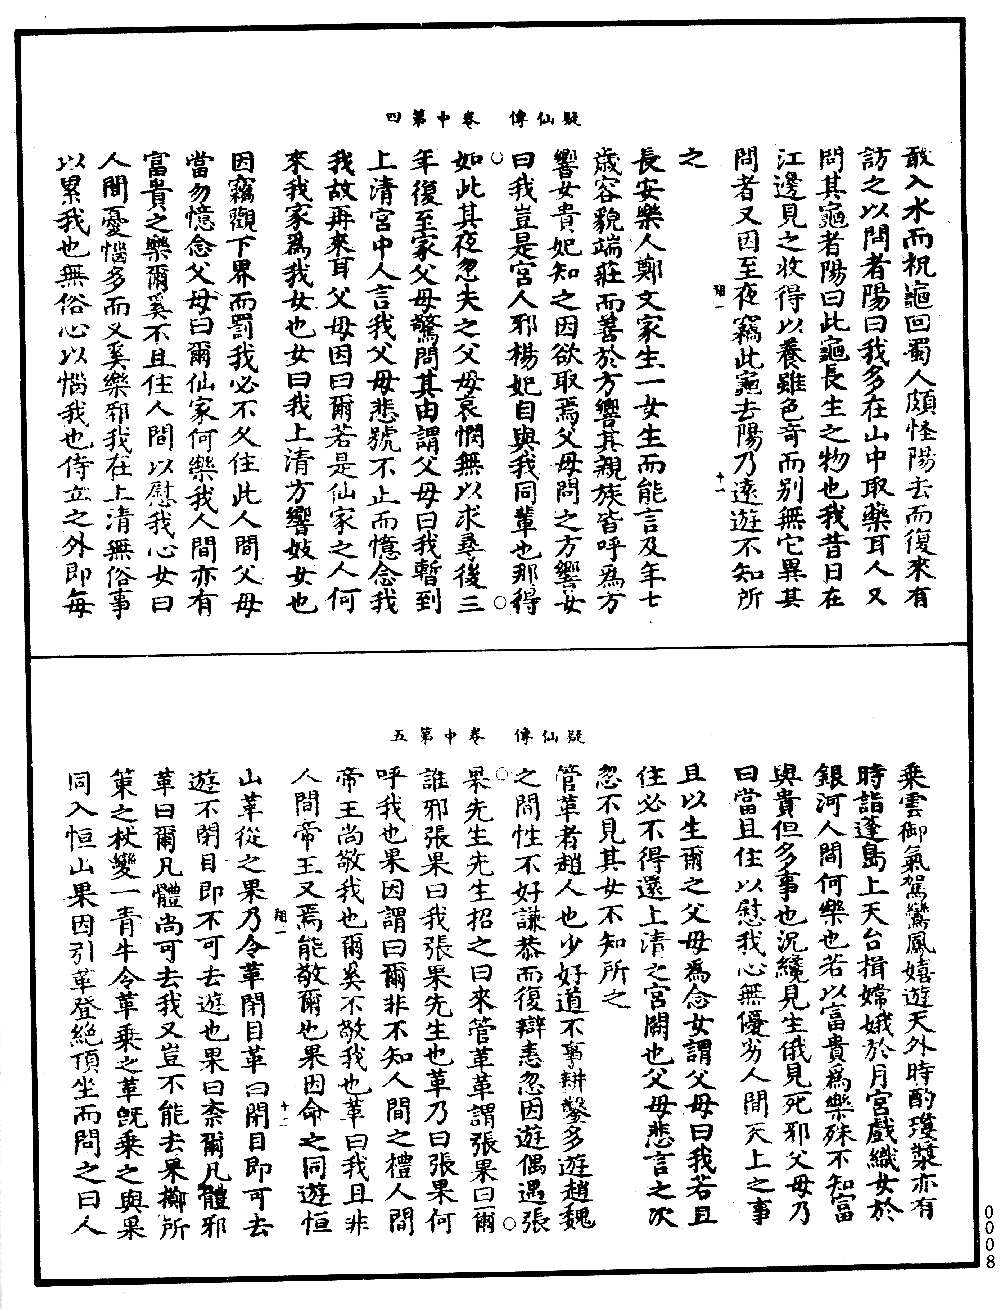 疑仙傳　卷中第四
敢入水而祝龜回蜀人頗怪陽去而復來有
訪之以問者陽曰我多在山中取藥耳人又
問其龜者陽曰此龜長生之物也我昔日在
江邊見之收得以養雖色奇而別無它異其
問者又因至夜竊此龜去陽乃遠遊不知所
翔一
十一
之
長安樂人鄭文家生一女生而能言及年七
歲容貌端莊而善於方響其親族皆呼爲方
響女貴妃知之因欲取焉父母問之方響女
曰我豈是宮人邪楊妃自與我同輩也那得
如此其夜忽失之父母哀憫無以求尋後三
年復至家父母驚問其由謂父母曰我暫到
上清宮中人言我父母悲號不止而憶念我
我故再來耳父母因曰爾若是仙家之人何
來我家爲我女也女曰我上清方響妓女也
因竊觀下界而罰我必不久住此人間父母
當勿憶念父母曰爾仙家何樂我人間亦有
富貴之樂爾奚不且住人間以慰我心女曰
人間憂惱多而又奚樂邪我在上清無俗事
以累我也無俗心以惱我也侍立之外即每
疑仙傳　卷中第五
乘雲御氣駕鸞鳳嬉遊天外時酌瓊漿亦有
時詣蓬島上天台揖嫦娥於月宮戲織女於
銀河人間何樂也若以富貴爲樂殊不知富
與貴但多事也況纔見生俄見死邪父母乃
曰當且住以慰我心無優劣人間天上之事
且以生爾之父母爲念女謂父母曰我若且
住必不得還上清之宮闕也父母悲言之次
忽不見其女不知所之
管革者趙人也少好道不事耕鑿多遊趙魏
之間性不好謙恭而復辯恚忽因遊偶遇張
果先生先生招之曰來管革革謂張果曰爾
誰邪張果曰我張果先生也革乃曰張果何
呼我也果因謂曰爾非不知人間之禮人間
帝王尚敬我也爾奚不敬我也革曰我且非
人間帝王又焉能敬爾也果因命之同遊恒
翔一
十二
山革從之果乃令革閉目革曰閉目即可去
遊不閉目即不可去遊也果曰柰爾凡體邪
革曰爾凡體尚可去我又豈不能去果擲所
策之杖變一青牛令革乘之革既乘之與果
同入恒山果因引革登絕頂坐而問之曰人
0008